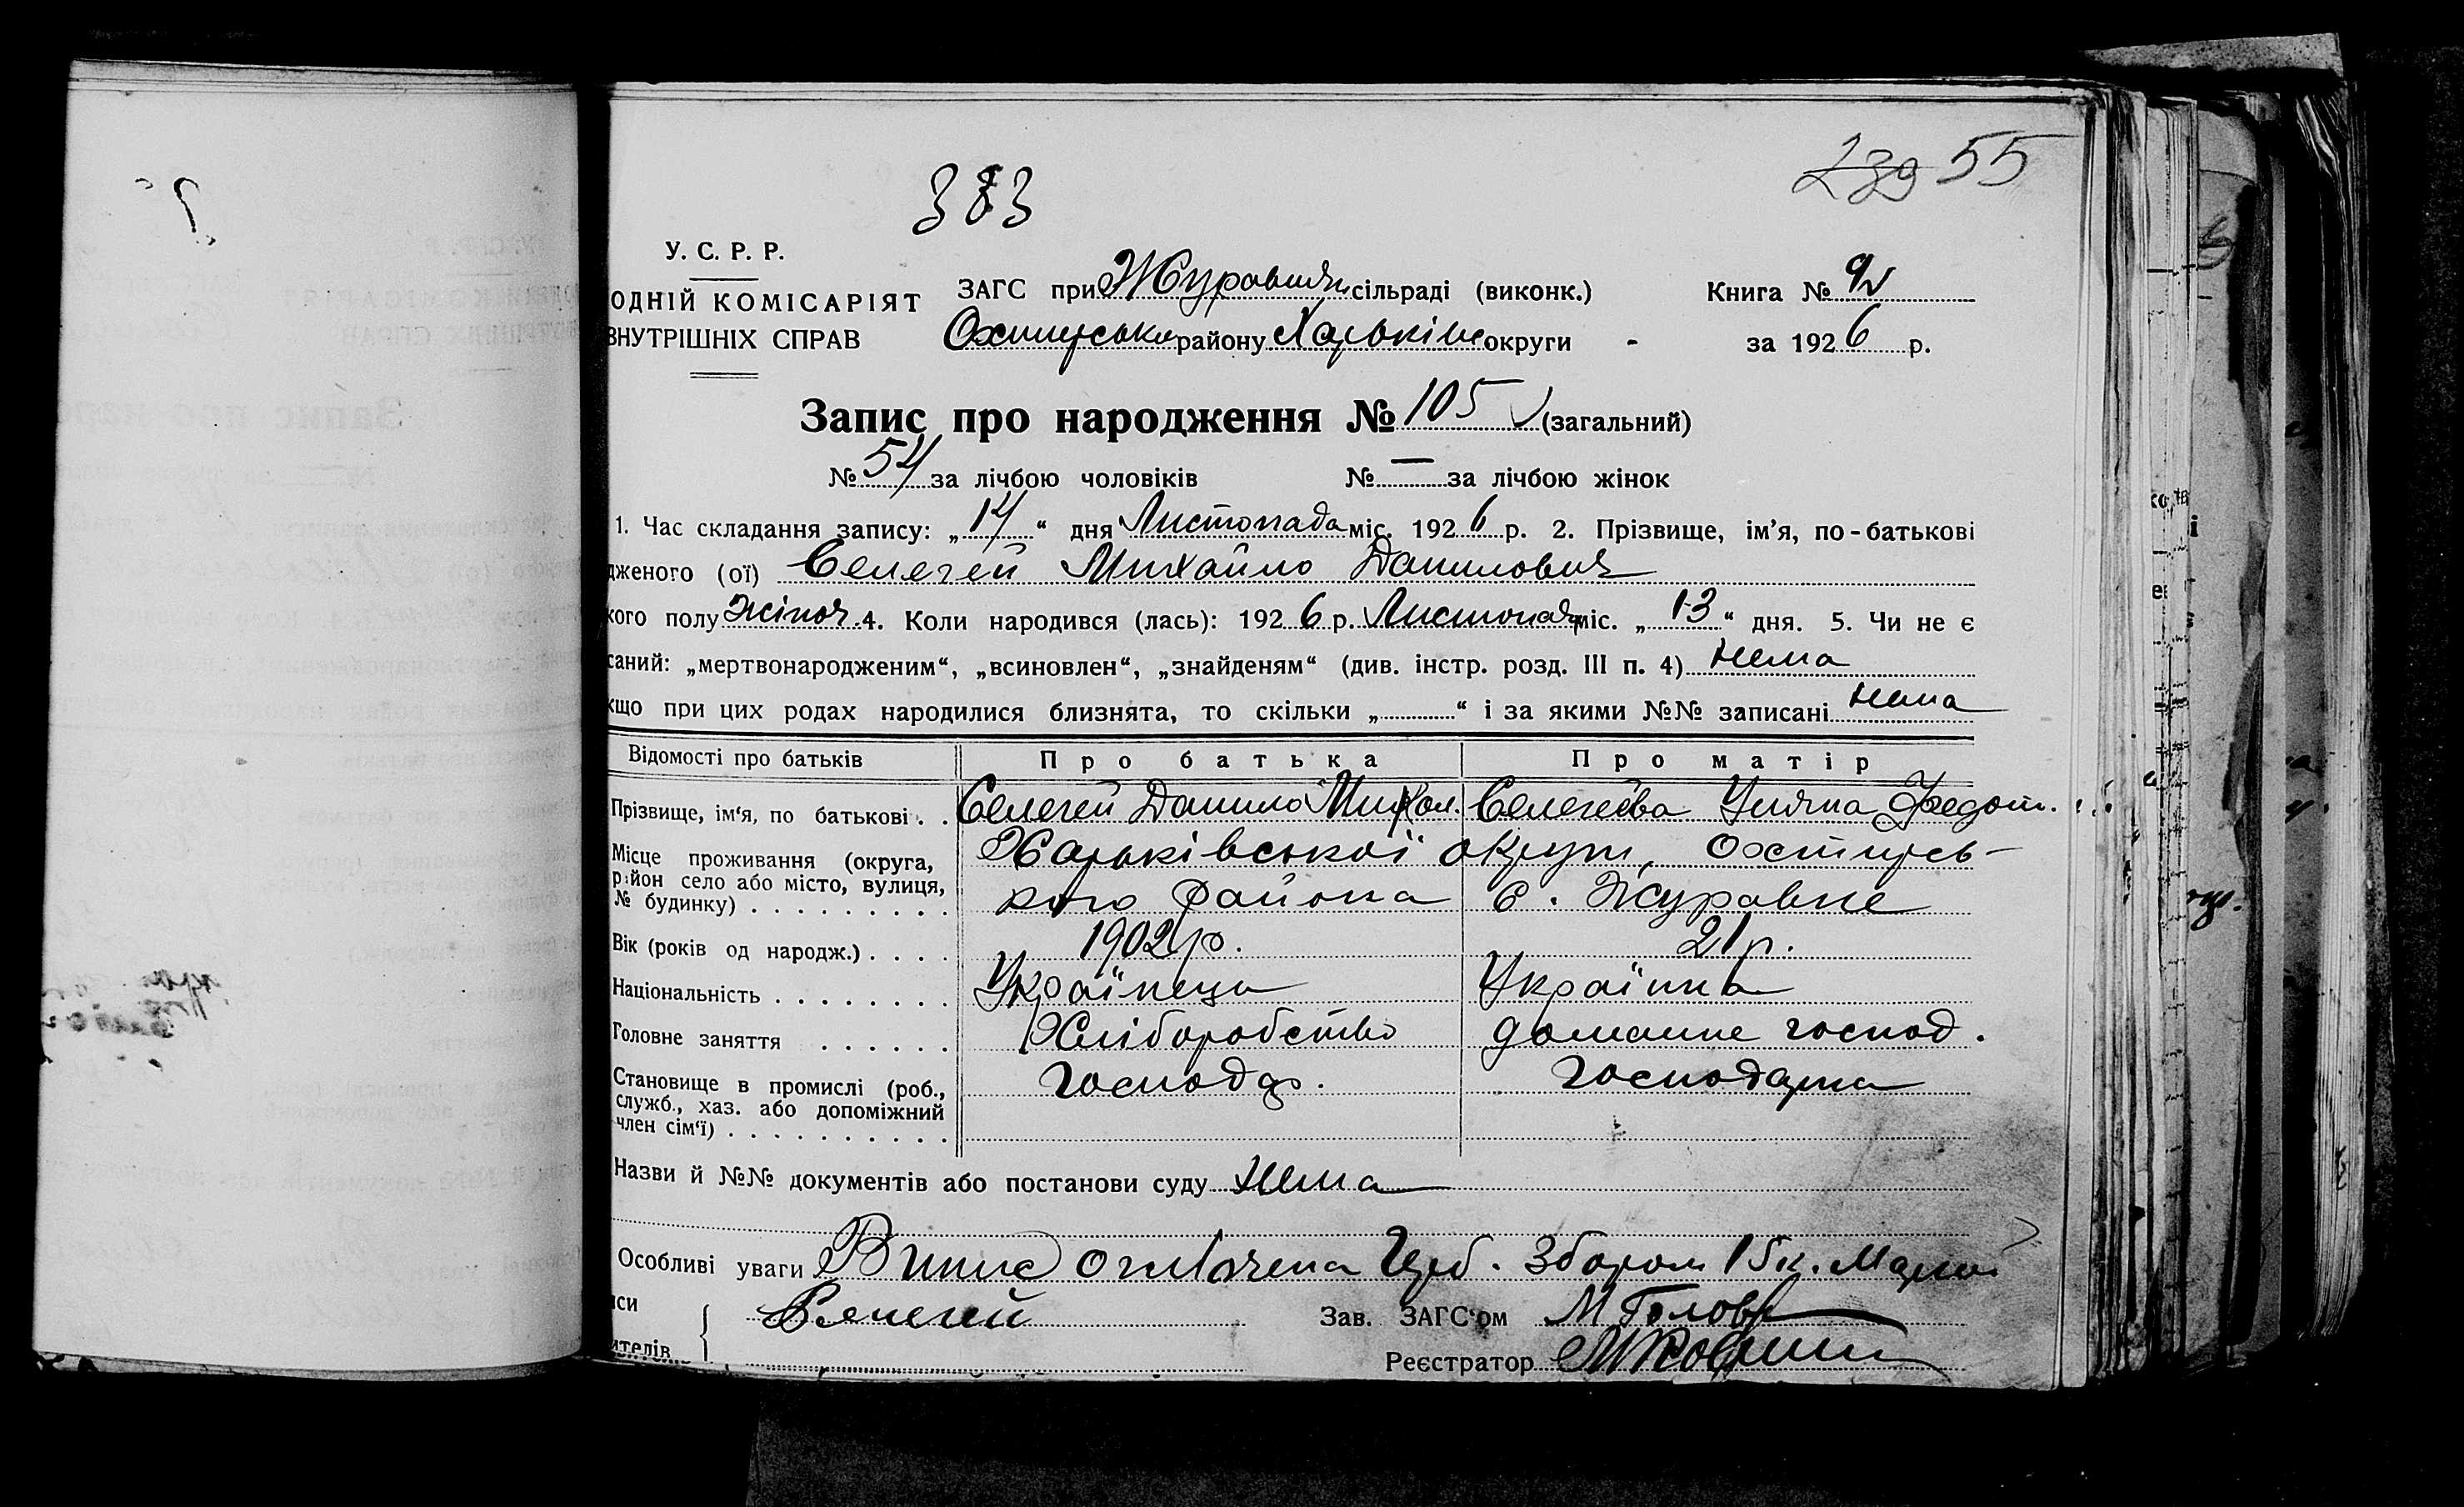 383
239 55
У. С. Р. Р.
ОДНІЙ КОМІСАРІЯТ
ВНУТРІШНІХ СПРАВ
ЗАГС при сільраді (виконк.)
району округи
Книга №
за 1926 р.
Запис про народження № 105 (загальний)
№ 54 за лічбою чоловіків № — за лічбою жінок
1. Час складання запису: „14“ дня Листопада міс. 1926 р. 2. Прізвище, ім’я, по-батькові
дженого (ої) Селегей Михайло Данилович
кого полу Жіноч. 4. Коли народився (лась): 1926 р. Листопад міс. „13“ дня. 5. Чи не є
саний: „мертвонародженим“, „всиновлен“, „знайденям“ (див. інстр. розд. III п. 4) Нема
кщо при цих родах народилися близнята, то скільки „ “ і за якими №№ записані Нема
Відомості про батьків Про батька Про матір
Прізвище, ім‘я, по батькові . . Селегей Данило Селегеєва Уляна Федот.
Місце проживання (округа, Харьківської округи, Охтирсь-
район село або місто, вулиця,
№ будинку) . . . . . . . . . кого района с. Журавне
Вік (років од народж.) . . . . 1902 р. 21 р.
Національність . . . . . . . . Українець Українка
Головне заняття . . . . . . Хліборобство домашнє господ.
Становище в промислі (роб., Господар. Господарка
служб., хаз. або допоміжний
член сім‘ї) . . . . . . . . . .
Назви й №№ документів або постанови суду Нема
Особливі уваги оплочена Герб. Збором 15к.
си Селегей Зав. ЗАГС‘ом М Голов
ителів Реєстратор